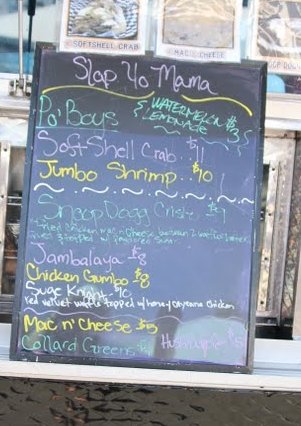 SOFTSHELL CRAB
MAC N CHEESE
Slap Yo Mama
Po' Boys
WATERMELON $3
LEMONADE
Soft Shell Crab $11
Jumbo Shrimp $10
Snoop Dogg Cristo
Fried Chicken mac n Cheese between 2 waffles
& topped w/ powdered sugar
Jambalaya $8
Chicken Gumbo $8
Suge Knight
red velvet waffle topped w/ honey cayenne chicken
Mac n' Cheese $5
Collard Greens
Hushpuppies